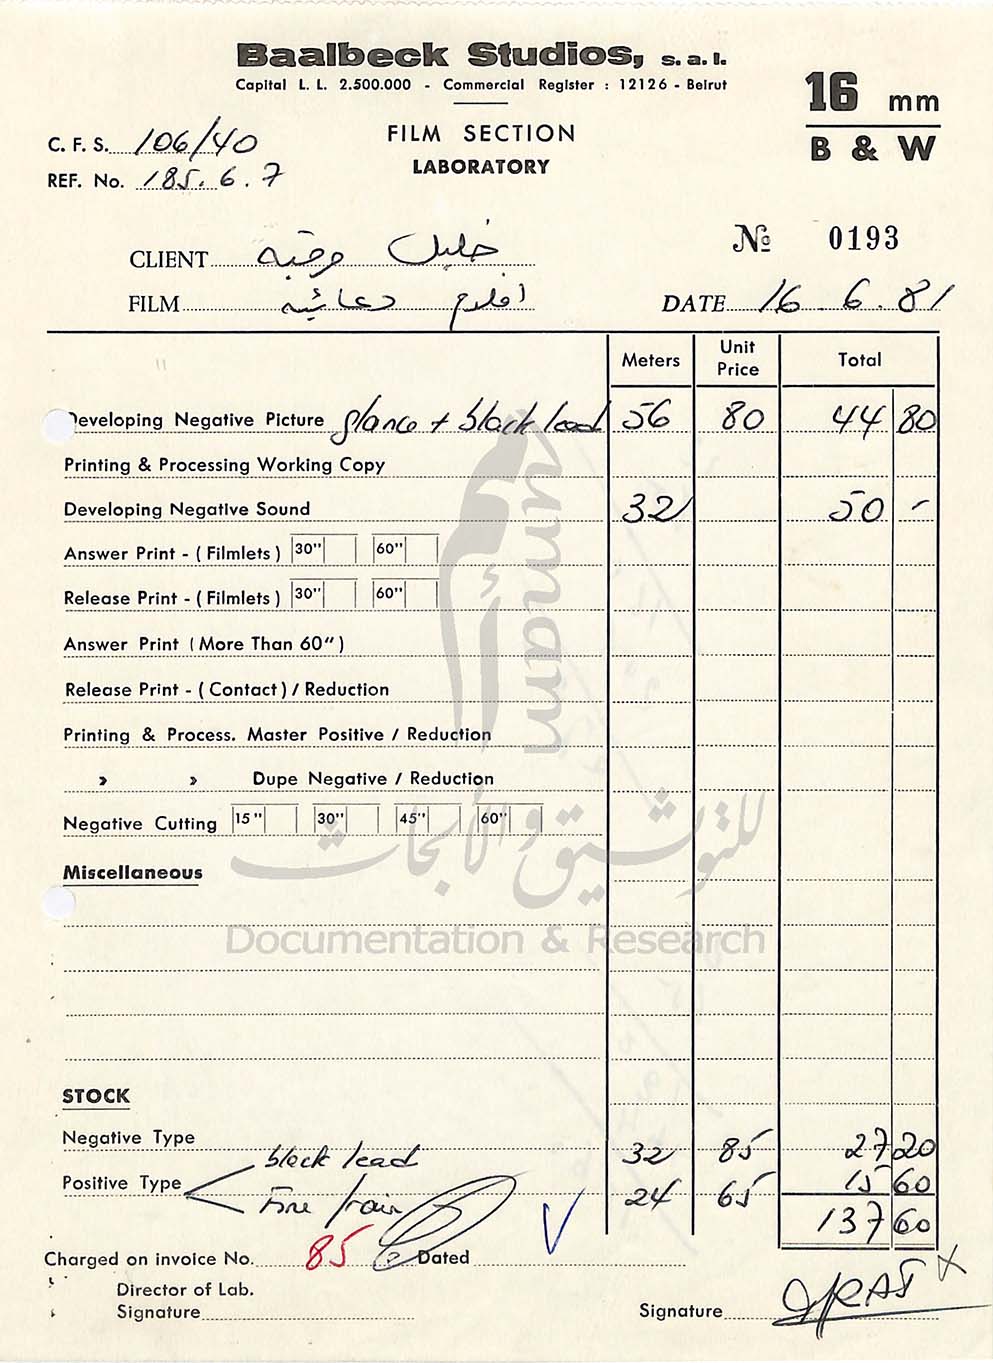 Baalbeck Studios, s.a.l.
Capital L. L. 2.500.000 - Commercial Register : 12126 - Beirut
16 mm
B & W
FILM SECTION
LABORATORY
C. F. S. 106/40
REF. No. 185.6.7
№ 0193
CLIENT خليل وقبه
FILM افلام دعائيه
DATE 16.6.81
Meters Unit Price Total
Developing Negative Picture + black lead 56 80 44 80
Printing & Processing Working Copy
Developing Negative Sound 32 50 -
Answer Print - ( Filmlets ) 30" 60"
Release Print - ( Filmlets ) 30" 60"
Answer Print ( More Than 60" )
Release Print - ( Contact ) / Reduction
Printing & Process. Master Positive / Reduction
» » Dupe Negative / Reduction
Negative Cutting 15" 30" 45" 60"
Miscellaneous
STOCK
Negative Type
black lead 32 85 27 20
Positive Type
Fine 24 65 15 60
137 60
Charged on invoice No. 85 Dated
Director of Lab.
Signature
Signature
umam
للتوثيق والأبحاث
Documentation & Research